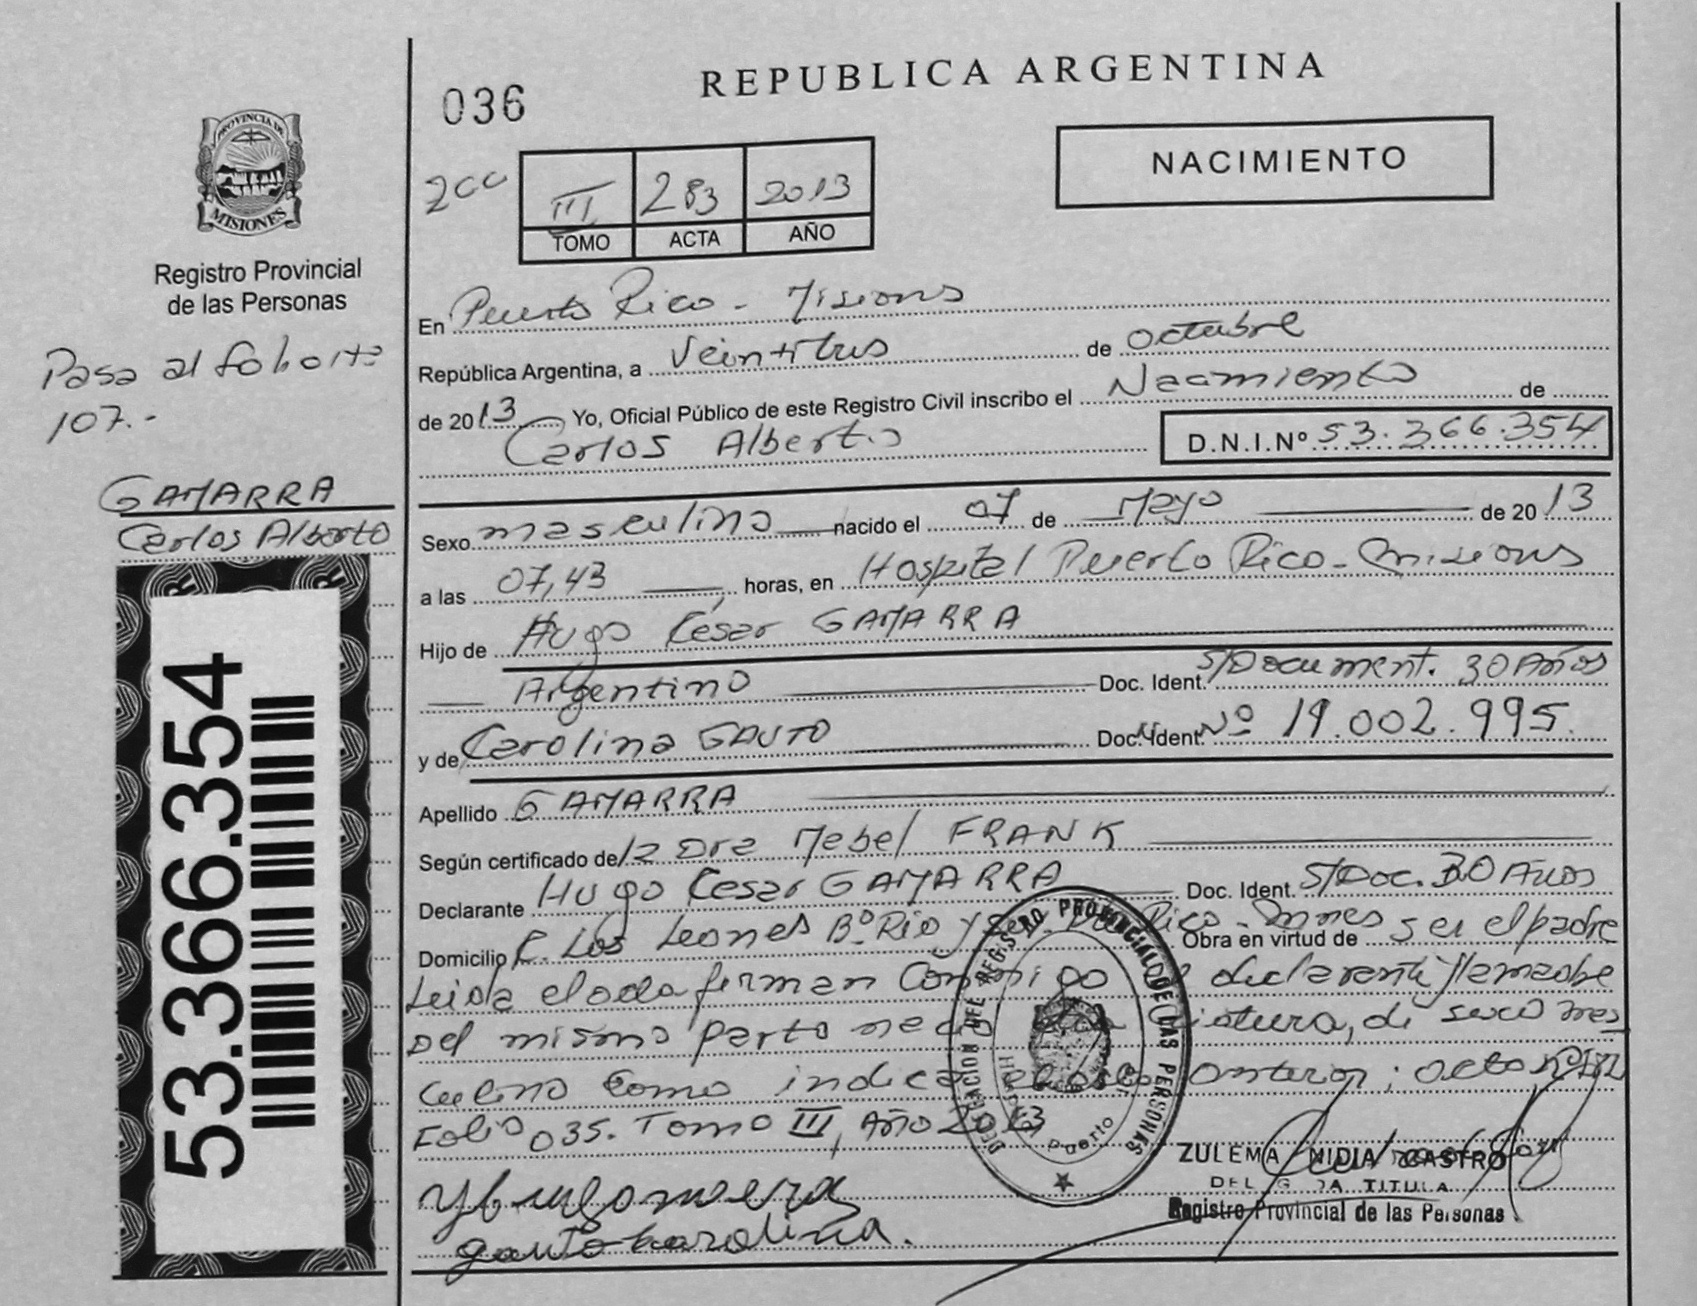 036
REPUBLICA ARGENTINA
NACIMIENTO
III 283 2013
TOMO ACTA AÑO
PROVINCIA DE
MISIONES
Registro Provincial
de las Personas
Pasa al folio
107.-
GAMARRA
Carlos Alberto
53.366.354
En Puerto Rico - Misions
República Argentina, a Veintitrus de octubre
de 2013 Yo, Oficial Público de este Registro Civil inscribo el Nacimiento de
Carlos Alberto D.N.I.Nº 53.366.354
Sexo masculino nacido el 07 de Mayo de 2013
a las 07,43 horas, en Hospital Puerto Rico - Misions
Hijo de Hugo César GAMARRA
Argentino Doc. Ident. S/Document. 30 Años
y de Carolina GAUTO Doc. Ident. Nº 19.002.995.
Apellido GAMARRA
Según certificado de la Dra Mabel FRANK
Declarante Hugo Cesar GAMARRA Doc. Ident. S/Doc. 30 Años
Domicilio C. Los Leones Bº Rio y Rico - Mnes Obra en virtud de ser el padre
Leida el acta firman Conmigo el declarante y la madre
Del mismo parto nacio otra criatura, de sexo mas
culino como indica el acta anterior; acto Nº 282
Folio 035. Tomo III, Año 2013
DELEGACION DEL REGISTRO PROVINCIAL DE LAS PERSONAS
Puerto
ZULEMA NIDIA CASTRO
DELEGADA TITULA
Registro Provincial de las Personas
gauto carolina.